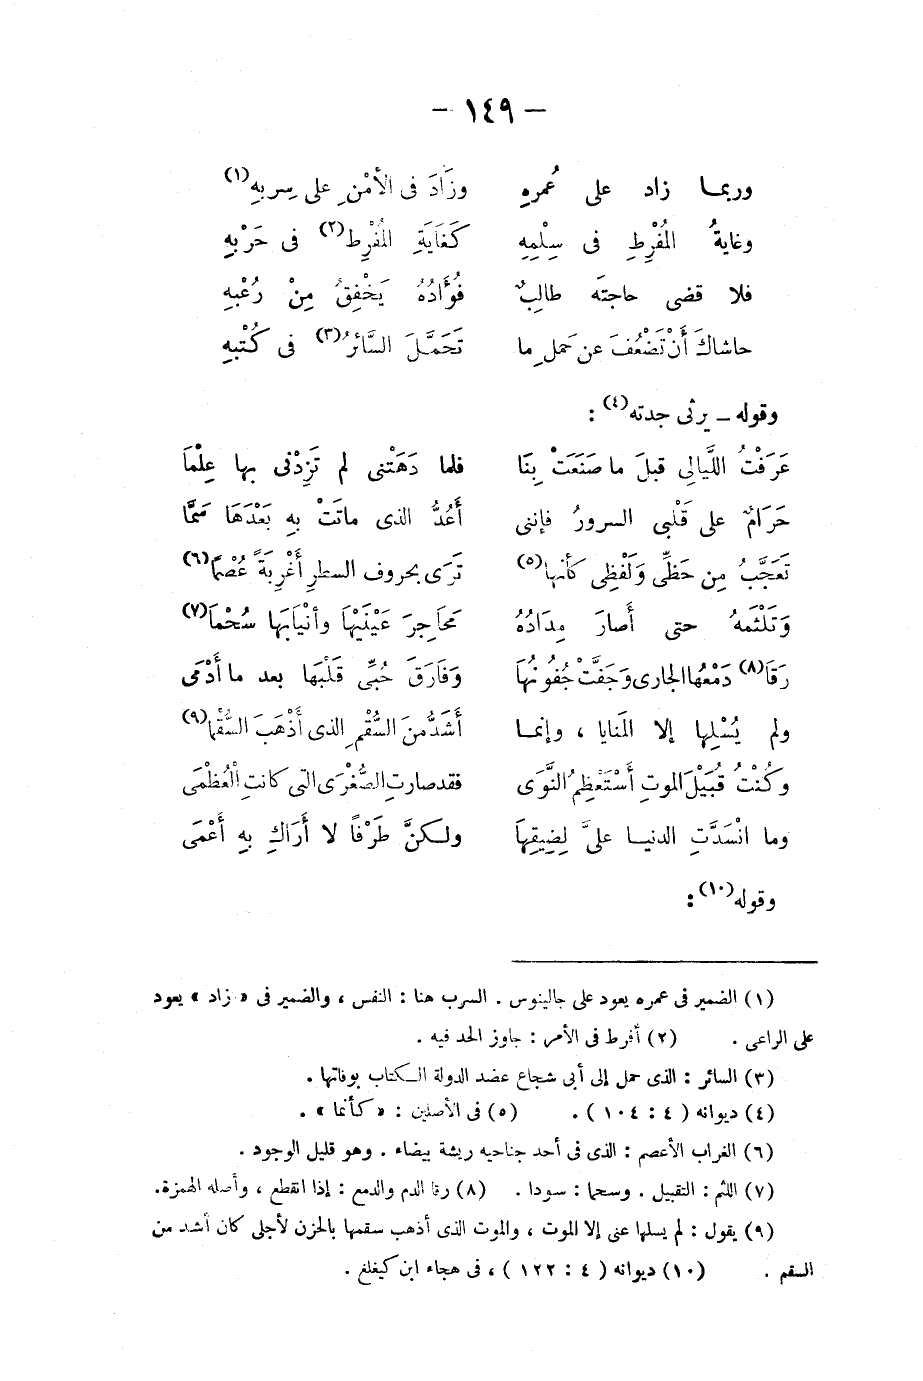 – ١٤٩ –
وربمـا زاد على عُمرهِ وزَادَ فى الأمْنِ على سِربهِ(١)
وغايةُ المُفْرِطِ فى سِلْمِهِ كَغَايَةِ المُفْرِط(٢) فى حَرْبهِ
فلا قضى حاجتَه طالِبٌ فُؤَادُهُ يَخْفِقُ مِنْ رُعْبهِ
حاشاكَ أَنْ تَضْعُفَ عن حَمل ِ ما تَحَمَّلَ السَّائرُ(٣) فى كُتْبهِ
وقوله – يرثى جدته(٤) :
عَرَفْتُ اللَّيالِى قبلَ ما صَنَعَتْ بِنَا فلما دَهَتْنى لم تَزِدْنى بها عِلْمَا
حَرَامٌ على قَلْبى السرورُ فإننى أَعُدُّ الذى ماتَتْ بِهِ بَعْدَهَا سَمَّا
تَعَجَّبُ مِن حَظِّى وَلَفْظِى كأنها(٥) تَرَى بحروف السطرِ أَغْرِبَةً عُصْمًا(٦)
وَتَلْثَمهُ حتى أصارَ مِدَادُهُ مَحَاجِرَ عَيْنَيْهَا وأنْيَابَها سُحْمَا(٧)
رَقَا(٨) دَمْعُها الجارى وَجَفَّتْ جُفُونُهَا وَفَارَقَ حُبِّى قَلْبَها بعد ما أَدْمَى
ولم يُسْلِها إلا المَنايا ، وإنمـا أَشَدُّ منَ السُّقْمِ الذى أَذْهَبَ السُّقْما(٩)
وكُنْتُ قُبَيْلَ الموتِ أَسْتَعْظِمُ النَّوَى فقد صارتِ الصُّغْرَى التى كانتِ العُظْمَى
وما انْسَدَّتِ الدنيـا علىَّ لِضِيقِهَا ولـكنَّ طَرْفاً لا أَرَاكِ بِهِ أَعْمَى
وقوله(١٠) :
(١) الضمير فى عمره يعود على جالينوس . السرب هنا : النفس ، والضمير فى « زاد » يعود
على الراعى . (٢) أفرط فى الأمر : جاوز الحد فيه .
(٣) السائر : الذى حمل إلى أبى شجاع عضد الدولة الـكتاب بوفاتها .
(٤) ديوانه ( ٤ : ١٠٤ ) . (٥) فى الأصلين : « كأنما » .
(٦) الغراب الأعصم : الذى فى أحد جناحيه ريشة بيضاء . وهو قليل الوجود .
(٧) اللثم : التقبيل . وسحما : سودا . (٨) رقا الدم والدمع : إذا انقطع ، وأصله الهمزة.
(٩) يقول : لم يسلها عنى إلا الموت ، والموت الذى أذهب سقمها بالحزن لأجلى كان أشد من
السقم . (١٠) ديوانه ( ٤ : ١٢٢ ) ، فى هجاء ابن كيغلغ .